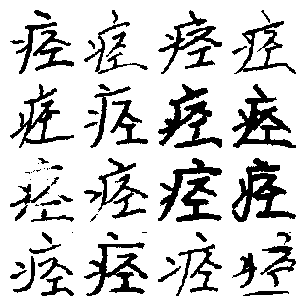 痉痉痉痉
痉痉痉痉
痉痉痉痉
痉痉痉痉